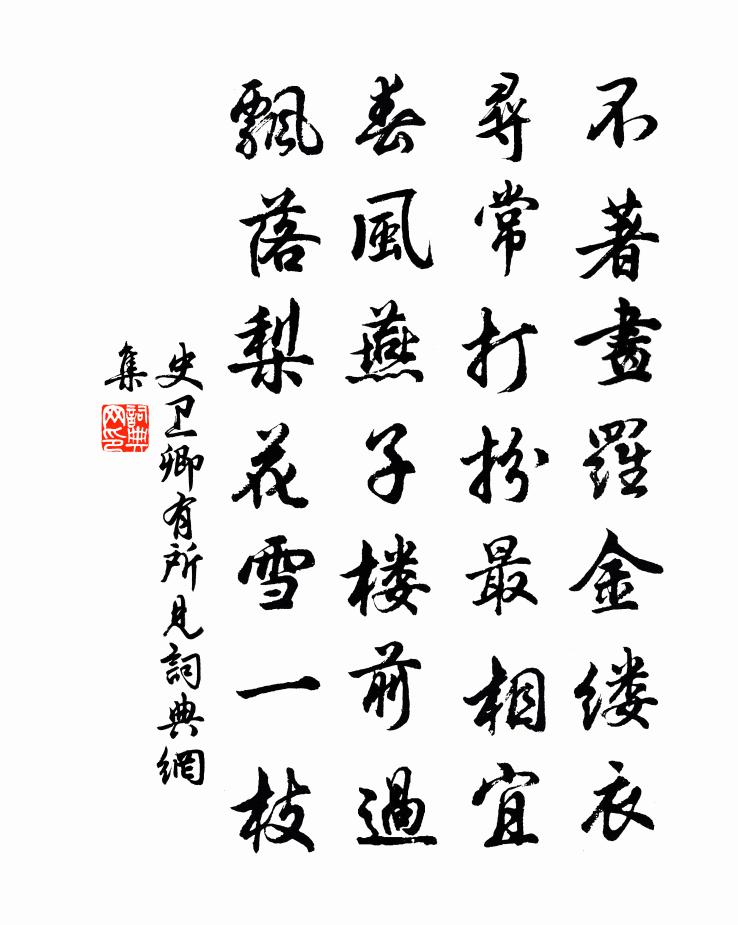 不著畫羅金缕衣
尋常打扮最相宜
春風燕子楼前過
飄落梨花雪一枝
史卫卿有所見詞典網
集
詞典
网印